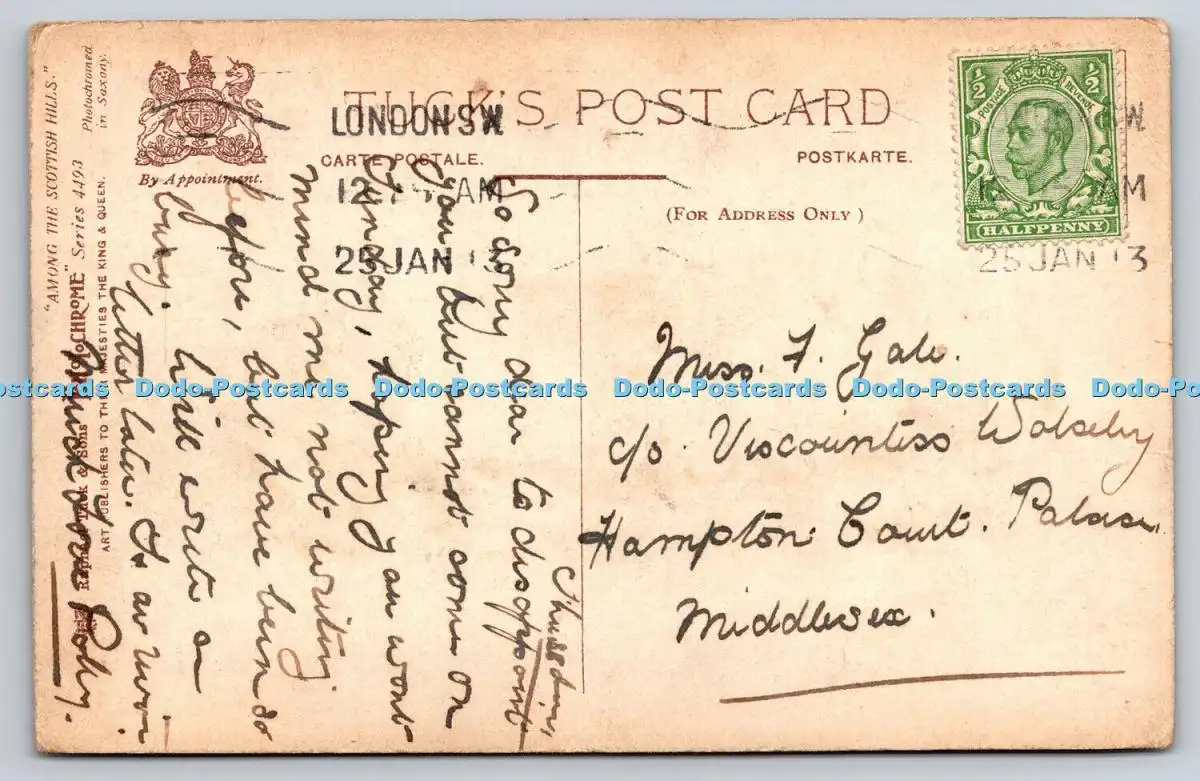 TUCK'S POST CARD
CARTE POSTALE.
POSTKARTE.
(FOR ADDRESS ONLY)
By Appointment.
LONDON S.W
12 AM
25 JAN 13
W
1 AM
25 JAN 13
½ ½
POSTAGE REVENUE
HALFPENNY
Miss. F. Gale.
c/o. Viscountess Wolseley
Hampton Court. Palace.
Middlesex.
Thursday,
So sorry dear to disappoint
you but cannot come on
Sunday, hoping you wont
mind me not writing
before, but have been so
busy. Will write a
letter later.
Much Love
"AMONG THE SCOTTISH HILLS."
Photochromed in Saxony.
Series 4493
Raphael Tuck & Sons
ART PUBLISHERS TO THEIR MAJESTIES THE KING & QUEEN.
Dodo-Postcards Dodo-Postcards Dodo-Postcards Dodo-Postcards